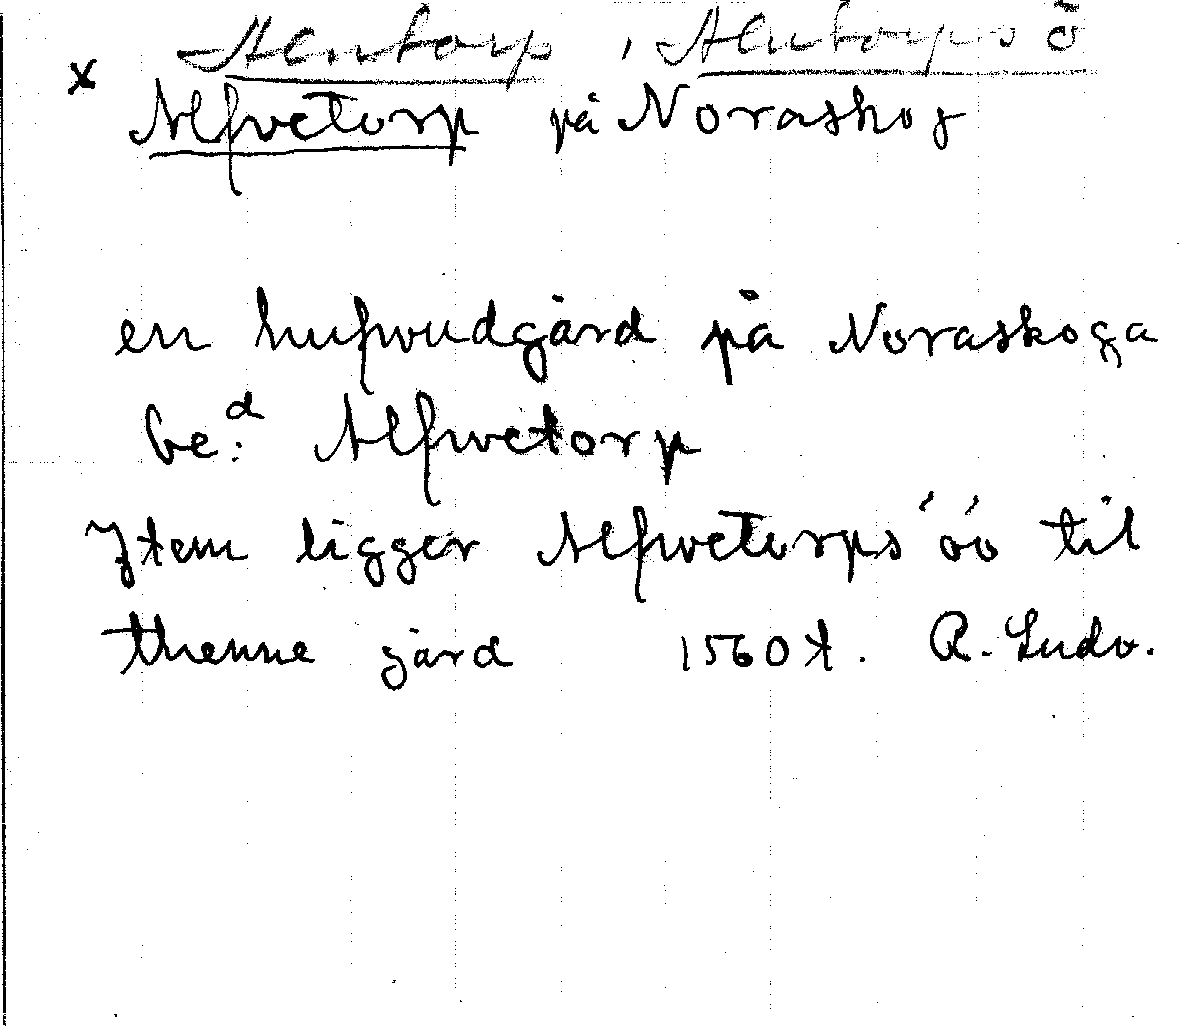 Alntorp, Alntorpsö
x
Alfvetorp på Noraskog
en hufwudgård på Noraskoga
be:d Alfwetorp
Jtem ligger Alfwetorps óó til
thenne gård 1560 t. R. Ludv.